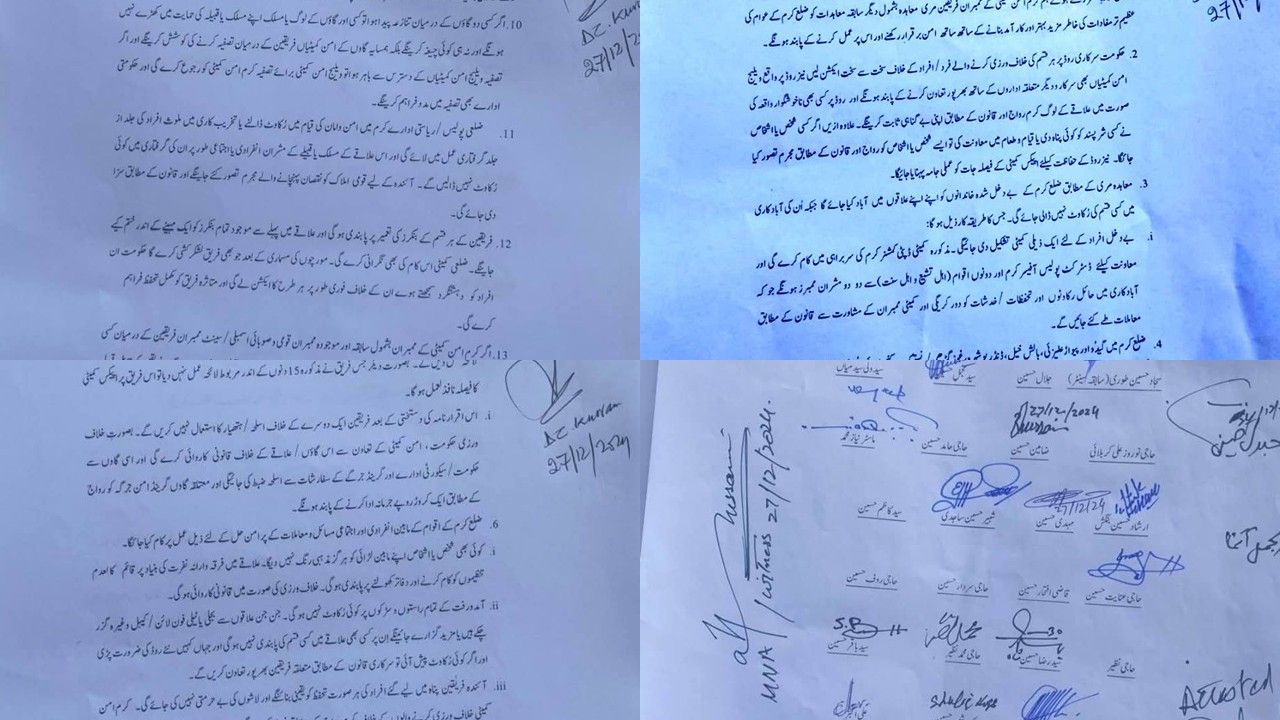 10. اگر کسی دو گاؤں کے درمیان تنازعہ پیدا ہوا تو کسی اور گاؤں کے لوگ یا مسلک اپنے مسلک یا قبیلہ کی حمایت میں کھڑے نہیں
ہونگے اور نہ ہی کوئی چینہ کرینگے بلکہ ہمسایہ گاوں کے امن کمیٹیاں فریقین کے درمیان تصفیہ کرنے کی کوشش کرینگے اور اگر
تصفیہ ویلیج امن کمیٹیاں کے دسترس سے باہر ہوا تو ویلیج امن کمیٹی برائے تصفیہ کرم امن کمیٹی کو رجوع کرے گی اور حکومتی
ادارے بھی تصفیہ میں مدد فراہم کرینگے۔
11. ضلعی پولیس / ریاستی ادارے کرم میں امن و امان کی قیام میں رکاوٹ ڈالنے یا تخریب کاری میں ملوث افراد کی جلد از
جلد گرفتاری عمل میں لائے گی اور اس علاقے کے مسلک یا قبیلے کے مشران انفرادی یا اجتماعی طور پر ان کی گرفتاری میں کوئی
رکاوٹ نہیں ڈالیں گے۔ آئندہ کے لیے قومی املاک کو نقصان پہنچانے والے مجرم تصور کئے جائینگے اور قانون کے مطابق سزا
دی جائے گی۔
12. فریقین کے ہر قسم کے بنکرز کی تعمیر پر پابندی ہو گی اور علاقے میں پہلے سے موجود تمام بنکرز کو ایک مہینے کے اندر ختم کیے
جائینگے۔ ضلعی کمیٹی اس کام کی بھی نگرانی کرے گی۔ مورچوں کی مسماری کے بعد جو بھی فریق لشکر کشی کرے گا حکومت ان
افراد کو دہشتگرد سمجھتے ہوے ان کے خلاف فوری طور پر ہر طرح کا ایکشن لے گی اور متاثرہ فریق کو مکمل تحفظ فراہم
کرے گی۔
13. اگر کرم امن کمیٹی کے ممبران بشمول سابقہ اور موجودہ ممبران قومی و صوبائی اسمبلی / سینٹ ممبران فریقین کے درمیان کسی
DC Kurram
27/12/2
عظیم تر مفادات کی خاطر مزید بہتر اور کار آمد بنانے کے ساتھ ساتھ امن برقرار رکھنے اور اس پر عمل کرنے کے پابند ہونگے۔
2. حکومت سرکاری روڈ پر ہر قسم کی خلاف ورزی کرنے والے فرد / افراد کے خلاف سخت سے سخت ایکشن لیں نیز روڈ پر واقع ویلیج
امن کمیٹیاں بھی سرکار و دیگر متعلقہ اداروں کے ساتھ بھر پور تعاون کرنے کے پابند ہونگے اور روڈ پر کسی بھی ناخوشگوار واقعہ کی
صورت میں علاقے کے لوگ کرم رواج اور قانون کے مطابق اپنی بے گناہی ثابت کرینگے۔ علاوہ ازیں اگر کسی شخص یا اشخاص
نے کسی شر پسند کو کوئی پناہ دی یا قیام و طعام میں معاونت کی تو ایسے شخص یا اشخاص کو رواج اور قانون کے مطابق مجرم تصور کیا
جائگا۔ نیز روڈ کے حفاظت کیلئے اپیکس کمیٹی کے فیصلہ جات کو عملی جامہ پہنایا جائیگا۔
3. معاہدہ مری کے مطابق ضلع کرم کے بے دخل شدہ خاندانوں کو اپنے اپنے علاقوں میں آباد کیا جائے گا جبکہ اُن کی آباد کاری
میں کسی قسم کی رکاوٹ نہیں ڈالی جائے گی۔ جس کا طریقہ کار ذیل ہو گا:
i. بے دخل افراد کے لئے ایک ذیلی کمیٹی تشکیل دی جائیگی۔ مذکورہ کمیٹی ڈپٹی کمشنر کرم کی سربراہی میں کام کرے گی اور
معاونت کیلئے ڈسٹرکٹ پولیس آفیسر کرم اور دونوں اقوام (اہل تشیع و اہل سنت) سے دو دو مشران ممبرز ہونگے جو کہ
آباد کاری میں حائل رکاوٹوں اور تحفظات / خدشات کو دور کریگی اور کمیٹی ممبران کے مشاورت سے قانون کے مطابق
معاملات طے کئے جائیں گے۔
27/12/
کا فیصلہ نافذ العمل ہو گا۔
i. اس اقرار نامہ کی دستخطی کے بعد فریقین ایک دوسرے کے خلاف اسلحہ / ہتھیار کا استعمال نہیں کریں گے۔ بصورتِ خلاف
ورزی حکومت، امن کمیٹی کے تعاون سے اس گاؤں / علاقے کے خلاف قانونی کاروائی کرے گی اور اسی گاوں سے
حکومت / سیکورٹی ادارے اور گرینڈ جرگے کے سفارشات سے اسلحہ ضبط کی جائیگی اور متعلقہ گاوں گرینڈ امن جرگہ کو رواج
کے مطابق ایک کروڑ روپے جرمانہ ادا کرنے کے پابند ہونگے۔
6. ضلع کرم کے اقوام کے مابین انفرادی اور اجتماعی مسائل و معاملات کے پر امن حل کے لئے ذیل عمل پر کام کیا جائگا۔
i. کوئی بھی شخص یا اشخاص اپنے مابین لڑائی کو ہر گز مذہبی رنگ نہیں دیگا۔ علاقے میں فرقہ وارانہ نفرت کی بنیاد پر قائم کالعدم
تنظیموں کو کام کرنے اور دفاتر کھولنے پر پابندی ہو گی۔ خلاف ورزی کی صورت میں قانونی کاروائی ہو گی۔
ii. آمد ورفت کے تمام راستوں و سڑکوں پر کوئی رکاوٹ نہیں ہو گی۔ جن جن علاقوں سے بجلی یا ٹیلی فون لائن / کیبل وغیرہ گزر
چکے ہیں یا مزید گزارے جائینگے ان پر کسی بھی علاقے میں کسی قسم کی پابندی نہیں ہو گی اور جہاں کہیں نئے روڈ کی ضرورت پڑی
اور اگر کوئی رکاوٹ پیش آئی تو سرکاری قانون کے مطابق متعلقہ فریقین بھر پور تعاون کریں گے۔
iii. آئندہ فریقین پناہ میں لیے گئے افراد کی ہر صورت تحفظ کو یقینی بنائینگے اور لاشوں کی بے حرمتی نہیں کی جائے گی۔ کرم امن
DC Kurram
27/12/2024
سجاد حسین طوری (سابقہ سینیٹر) جلال حسین سید تجمل حسین
27/12/2024
حاجی نوروز علی کربلائی ضامن حسین حاجی حامد حسین ماسٹر نیاز محمد
ارشاد حسین بنگش مہدی حسین شبیر حسین ساجدی سید کاظم حسین
حاجی عنایت حسین قاضی افتخار حسین حاجی سردار حسین حاجی رؤف حسین
حاجی نظیر سید رضا حسین حاجی محمد نظیر سید باقر حسین
MNA / witness 27/12/2024.
Attested